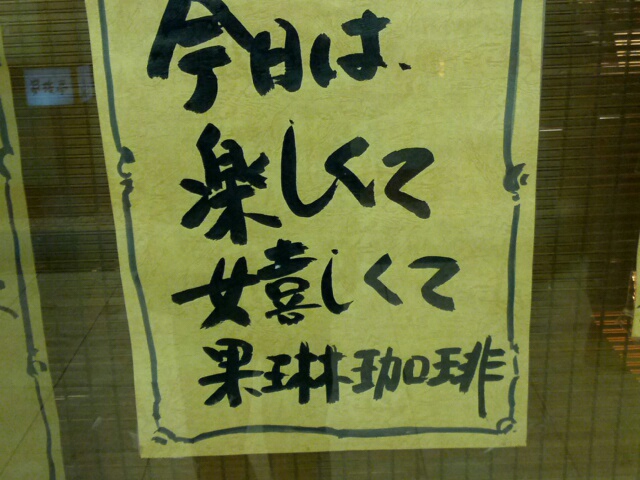 今日は、
楽しくて
嬉しくて
果琳珈琲